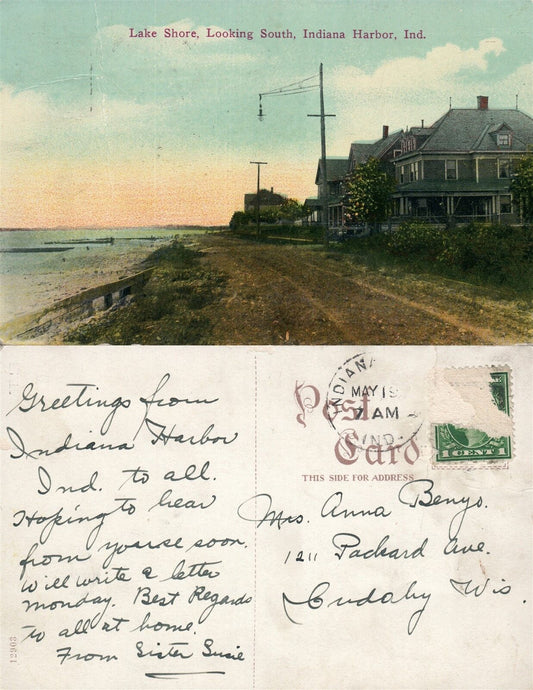 Lake Shore, Looking South, Indiana Harbor, Ind.
Greetings from
Indiana Harbor
Ind. to all.
Hoping to hear
from yourse soon.
Will write a letter
monday. Best Regards
to all at home.
From Sister Susie
12903
Post
Card
THIS SIDE FOR ADDRESS
INDIANA
MAY 19
7 AM
IND.
1 CENT 1
Mrs. Anna Benyo.
1211 Packard Ave.
Cudahy Wis.